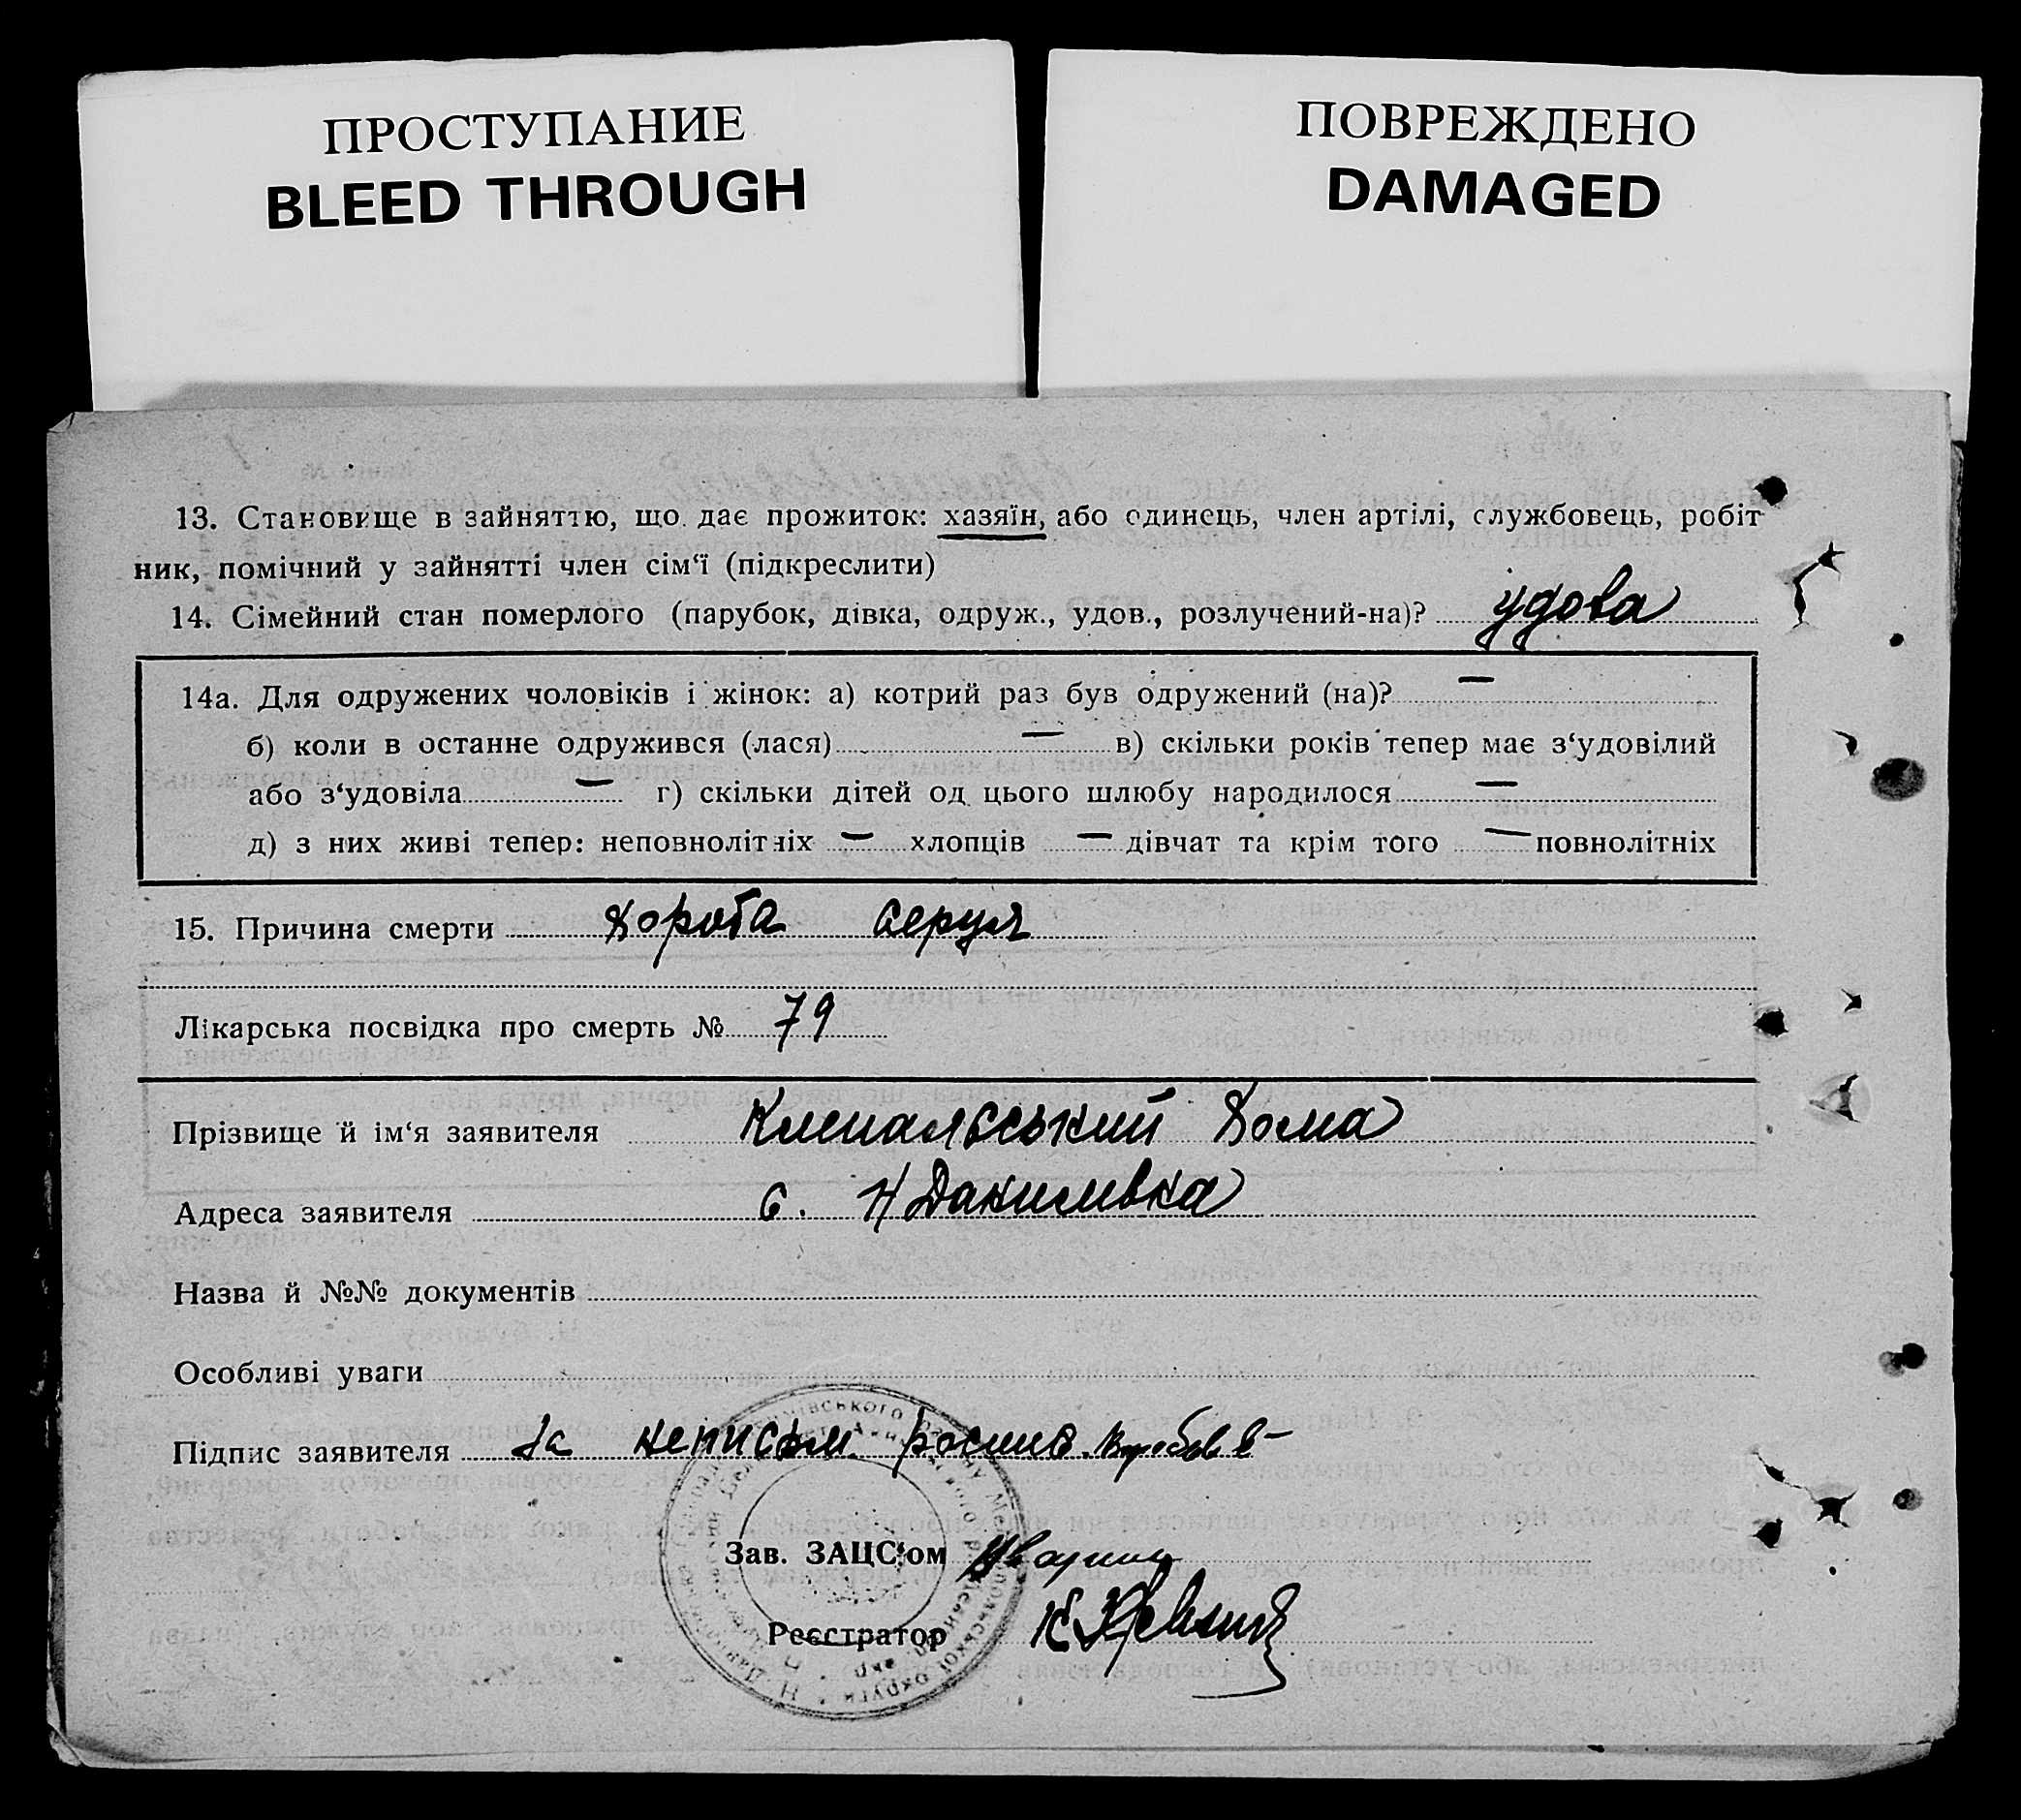 ПРОСТУПАНИЕ
BLEED THROUGH
ПОВРЕЖДЕНО
DAMAGED
13. Становище в зайняттю, що дає прожиток: хазяїн, або одинець, член артілі, службовець, робіт
ник, помічний у зайнятті член сім‘ї (підкреслити)
14. Сімейний стан померлого (парубок, дівка, одруж., удов., розлучений-на)? удова
14а. Для одружених чоловіків і жінок: а) котрий раз був одружений (на)? —
б) коли в останне одружився (лася) — в) скільки років тепер має з‘удовілий
або з‘удовіла — г) скільки дітей од цього шлюбу народилося —
д) з них живі тепер: неповнолітніх — хлопців — дівчат та крім того — повнолітніх
15. Причина смерти Хороба серця
Лікарська посвідка про смерть № 79
Прізвище й ім‘я заявителя Хома
Адреса заявителя с. Н Данилівка
Назва й №№ документів
Особливі уваги
Підпис заявителя За неписьм. росписв.
Зав. ЗАЦС‘ом
Реєстратор